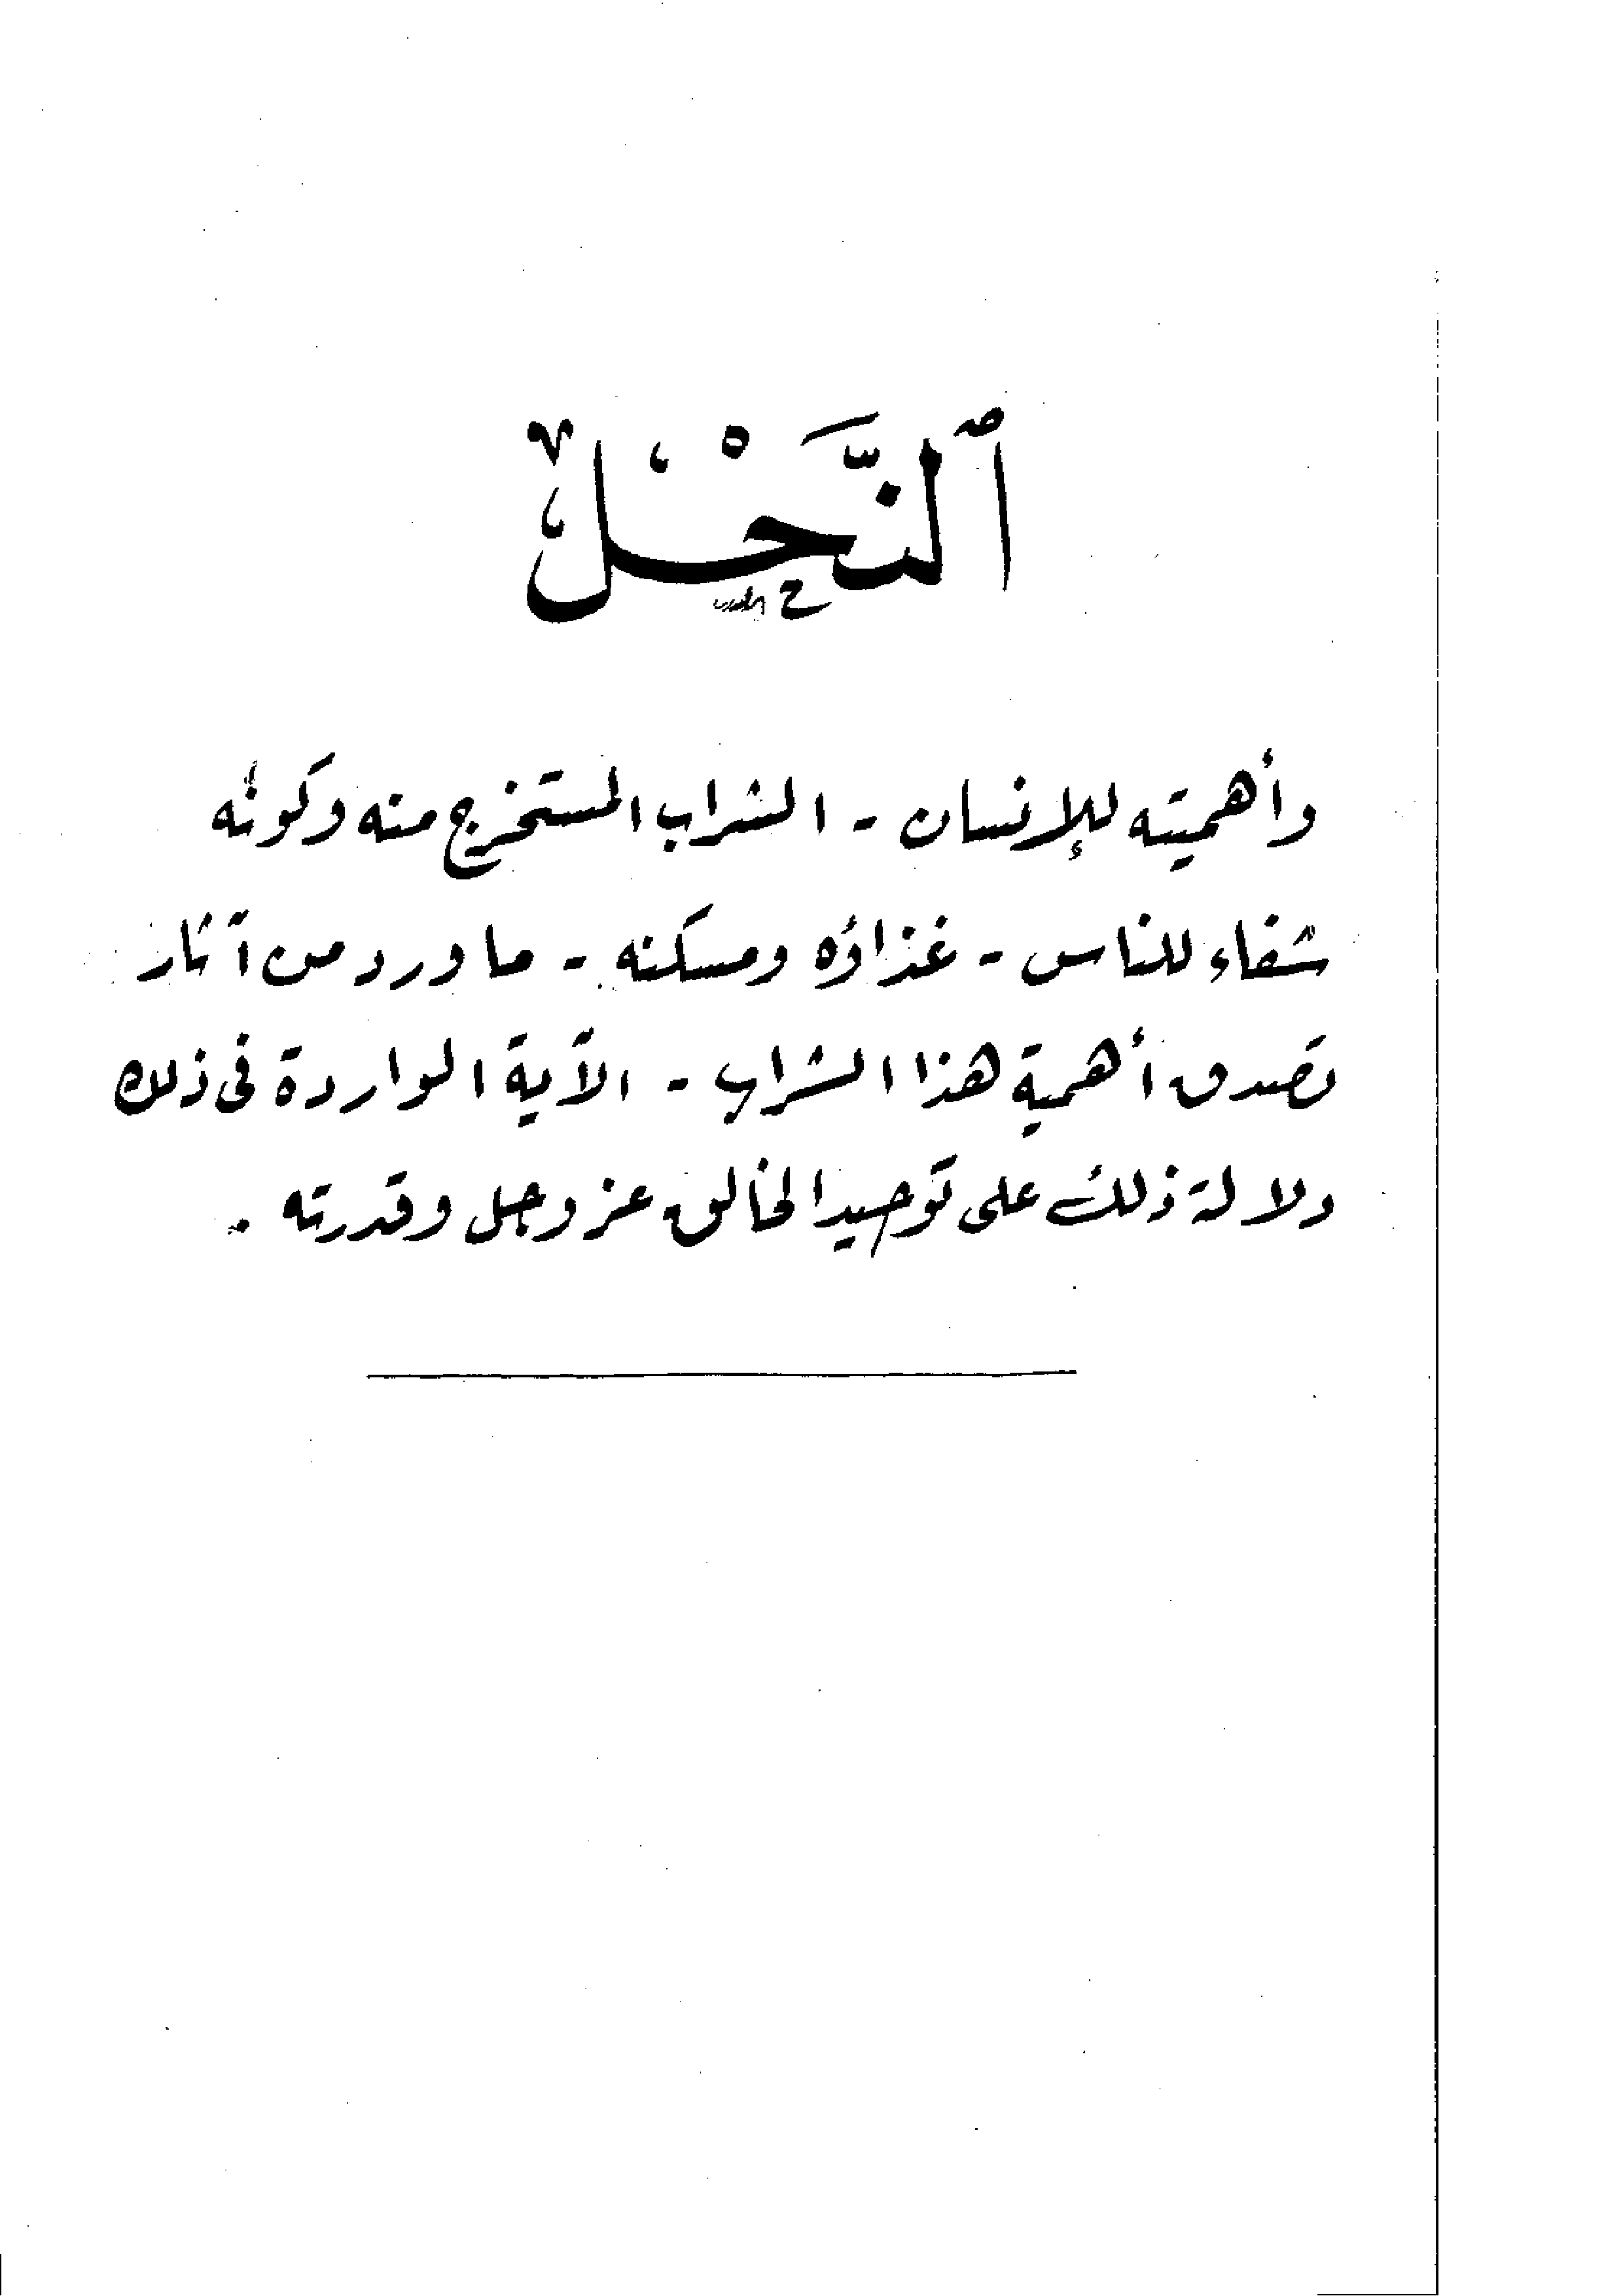 ٱلنَّحْلِ
وأهميته للإنسان - الشراب المستخرج منه وكونه
شفاء للناس - غذاؤه ومسكنه - ما ورد من آثار
تصدق أهمية هذا الشراب - الآية الواردة فى ذلك
دلالة ذلك على توحيد الخالق عز وجل وقدرته .